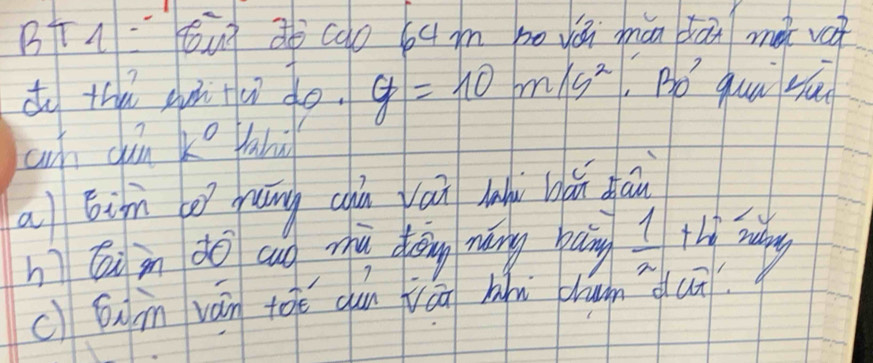 BT1: Từ độ cao 64 m so với mặt đất một vật
đc thả rơi tự do. g = 10 m/s². Bỏ qua sức
cản của k⁰ khí
a) Tìm cơ năng của vật khi bắt đầu
b) Tìm độ cao mà động năng bằng 1/2 thế năng
c) Tìm vận tốc của vật khi chạm đất.